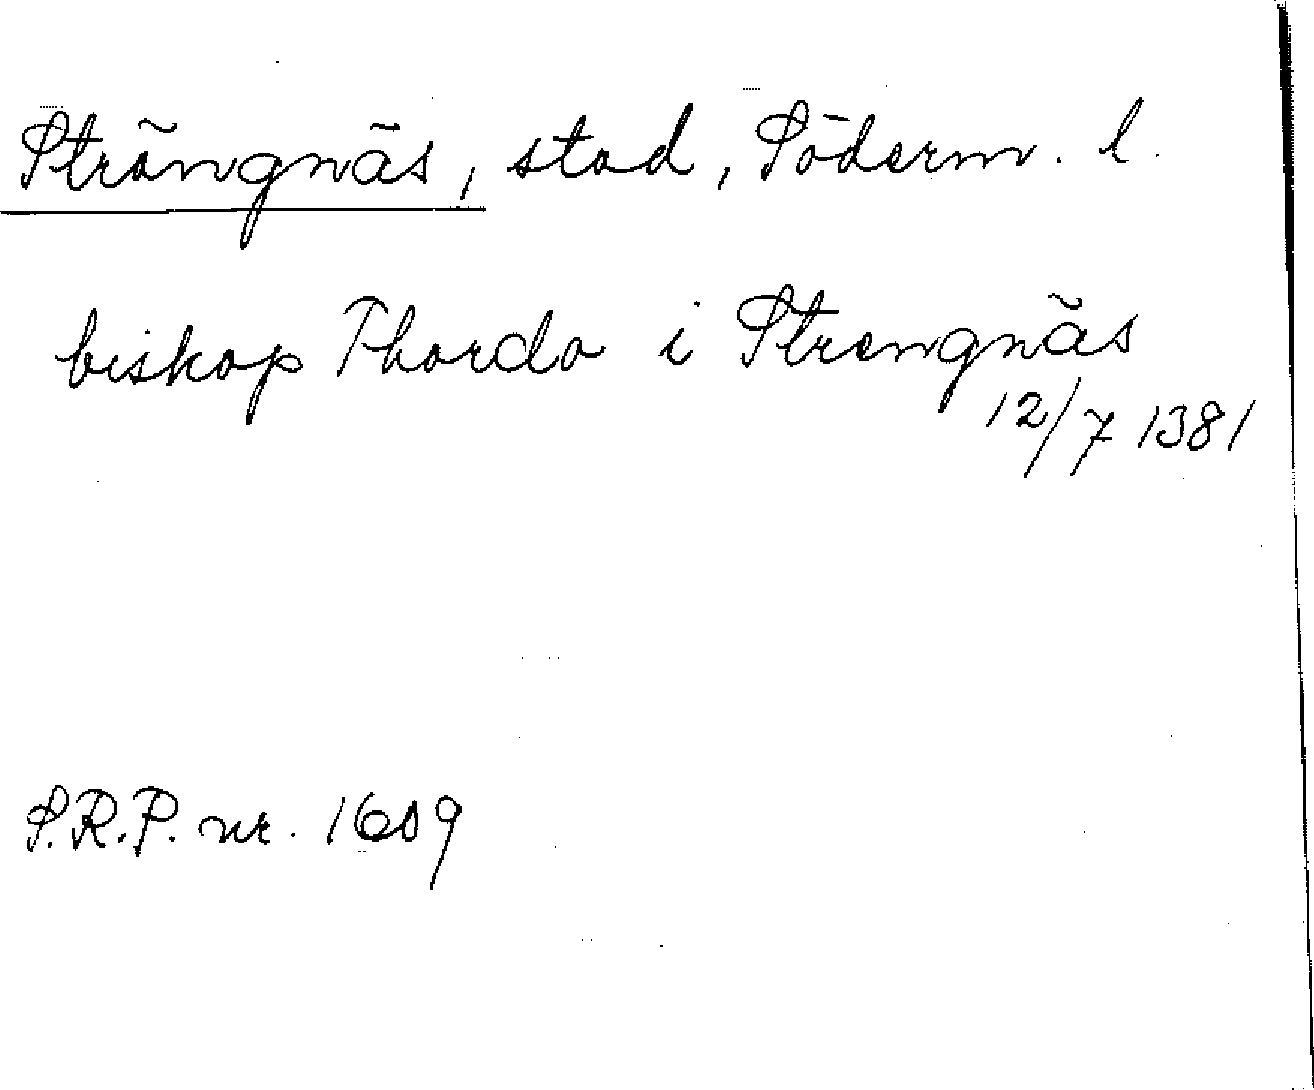 Strängnäs, stad, Söderm. l.
biskop Thordo i Strengnäs
12/7 1381
S.R.P. nr. 1609